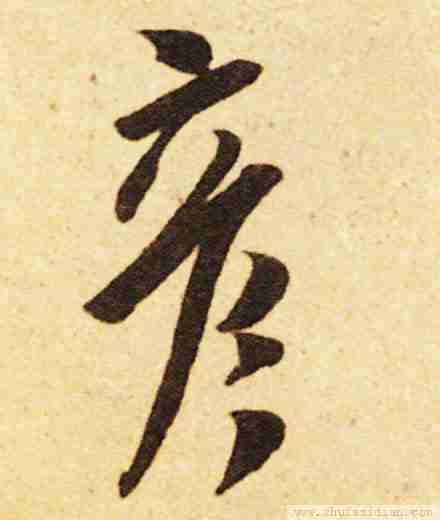 彦
www.shufazidian.com